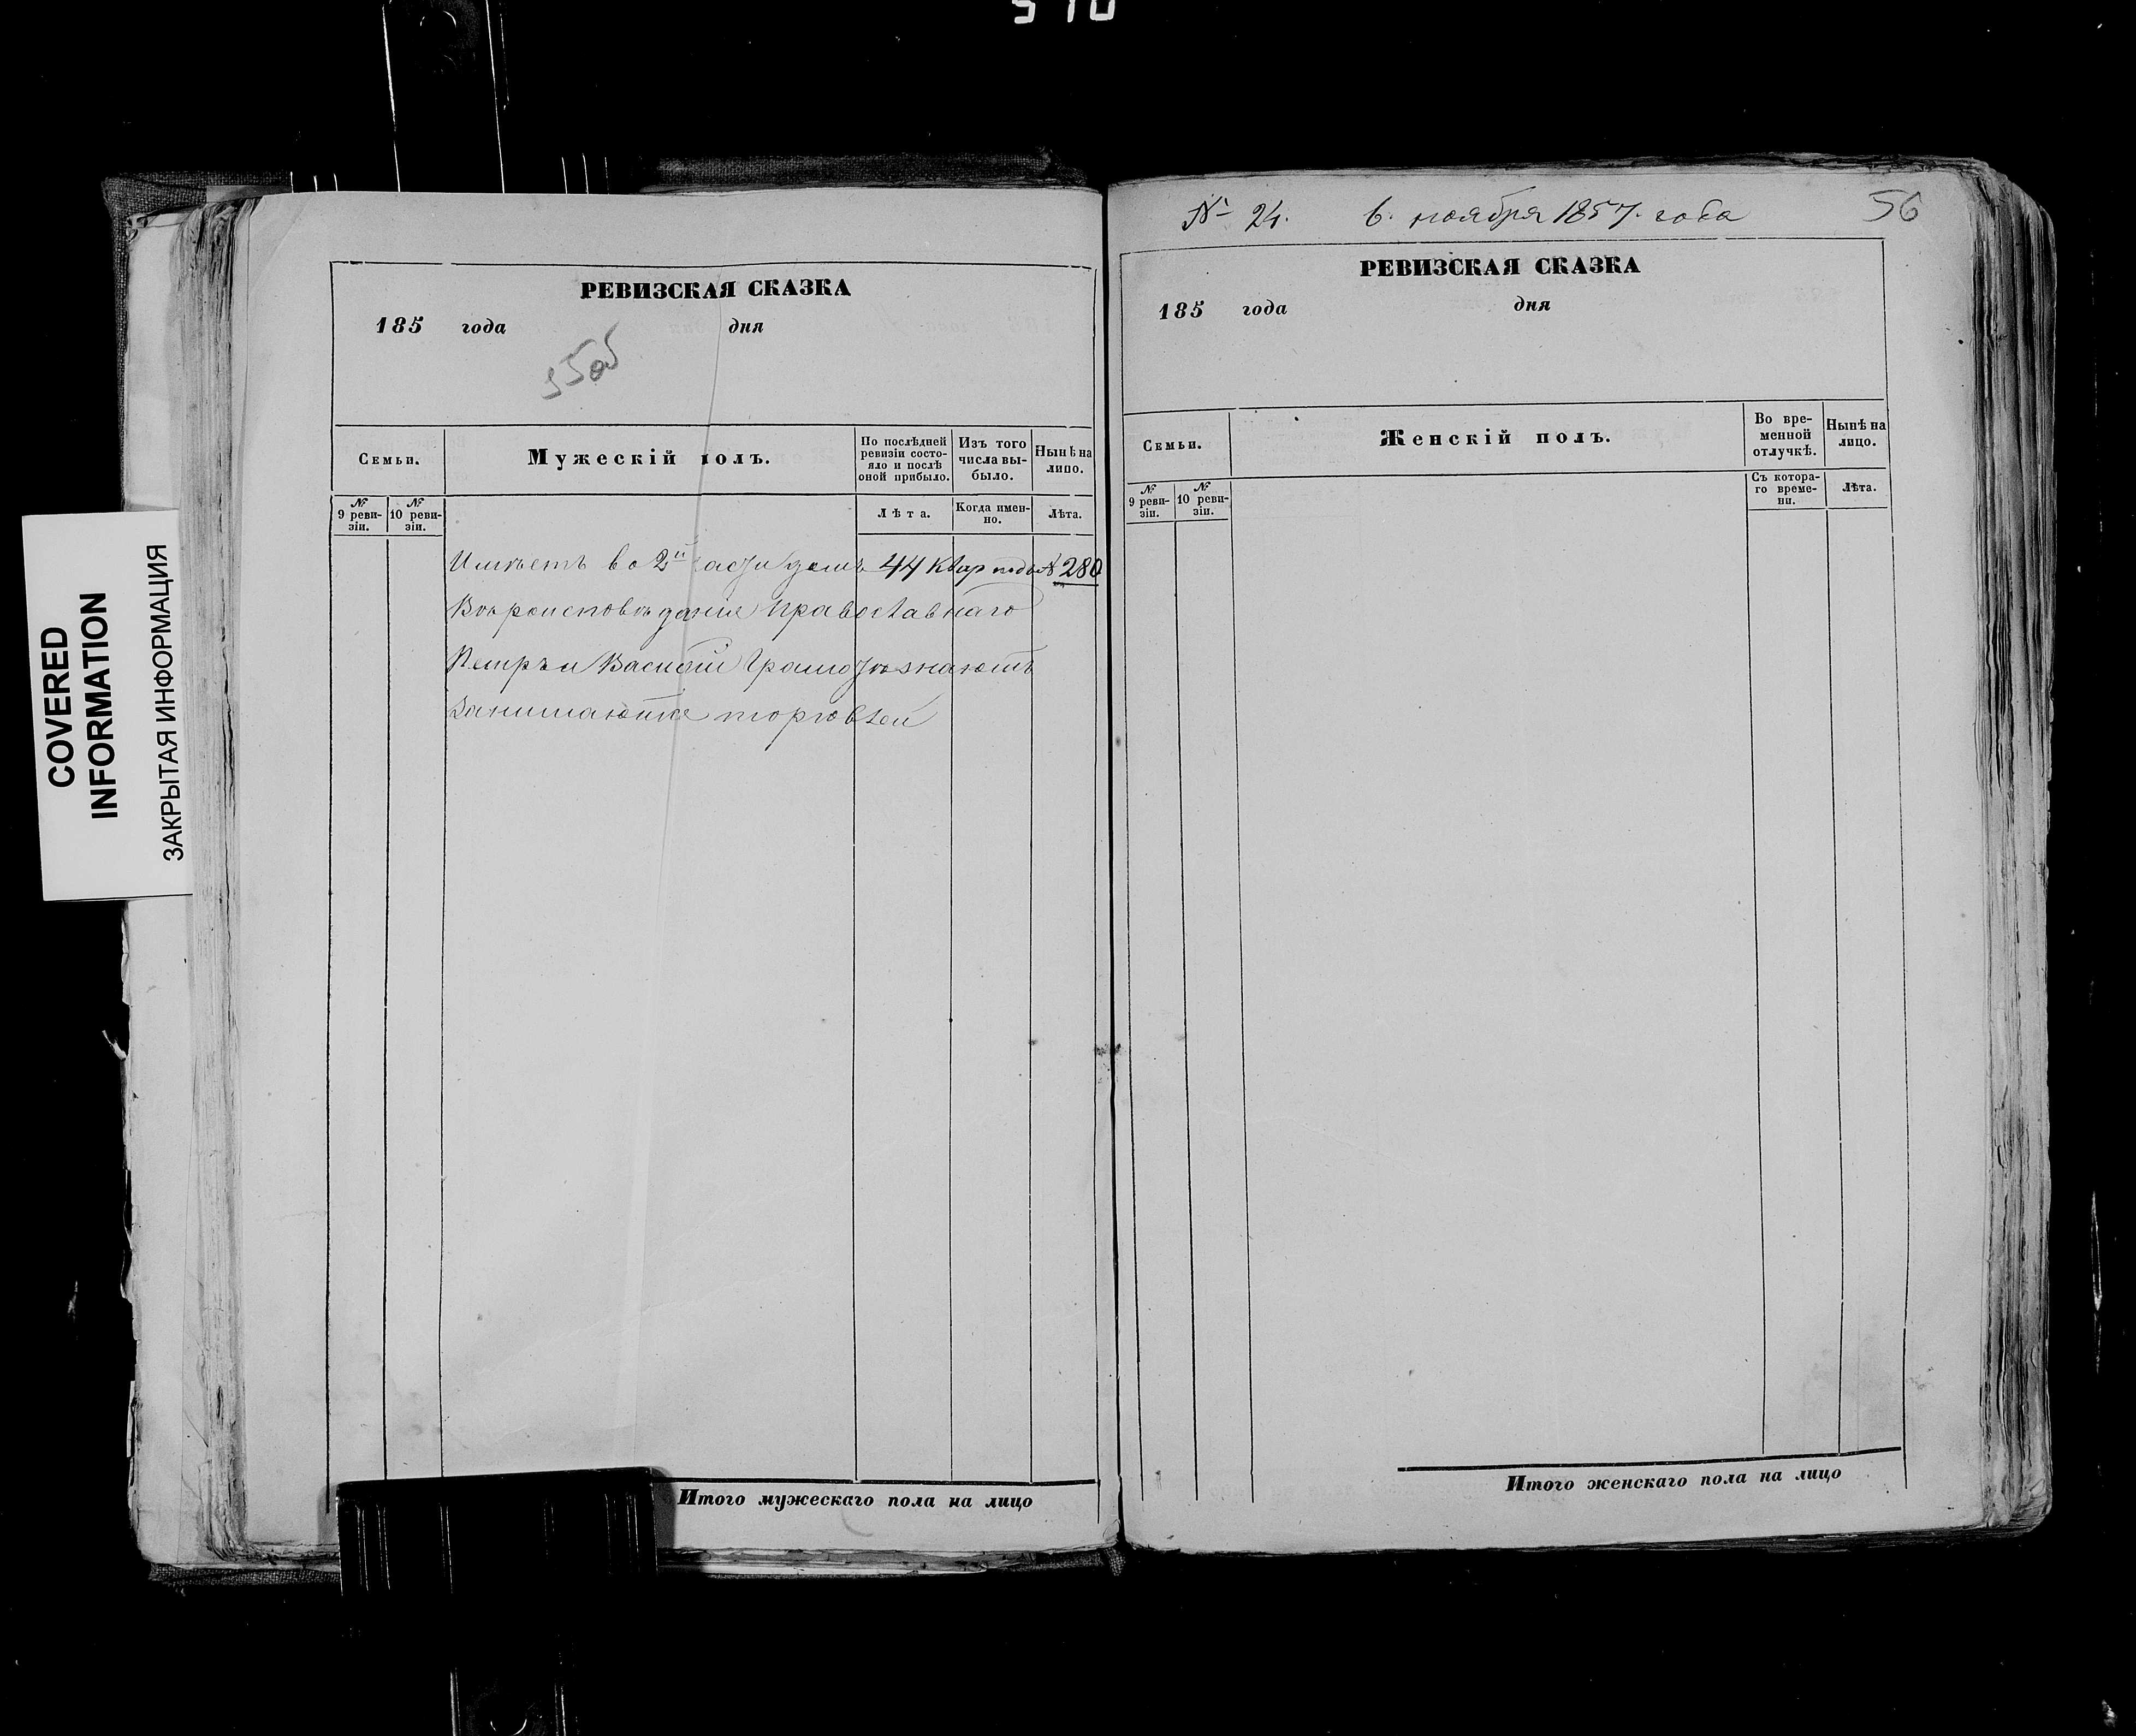 510
COVERED
INFORMATION
ЗАКРЫТАЯ ИНФОРМАЦИЯ
РЕВИЗСКАЯ СКАЗКА
185 года дня
55об
Семьи.
Мужескій полъ.
По послѣдней ревизіи состо-
яло и послѣ
оной прибыло.
Изъ того
числа вы-
было.
Нынѣ на
лицо.
№
9 реви-
зіи.
№
10 реви-
зіи.
Лѣта.
Когда имен-
но.
Лѣта.
Имѣетъ во 2й части домъ 44 квар подъ № 280
Вѣроисповѣданіе православнаго
Петръ и Василій Грамотѣ знаютъ
Занимаются торговлей
Итого мужескаго пола на лицо
№ 24. 6. ноября 1857. года
56
РЕВИЗСКАЯ СКАЗКА
185 года дня
Семьи.
Женскій полъ.
Во вре-
менной
отлучкѣ.
Нынѣ на
лицо.
№
9 реви-
зіи.
№
10 реви-
зіи.
Съ котора-
го време-
ни.
Лѣта.
Итого женскаго пола на лицо